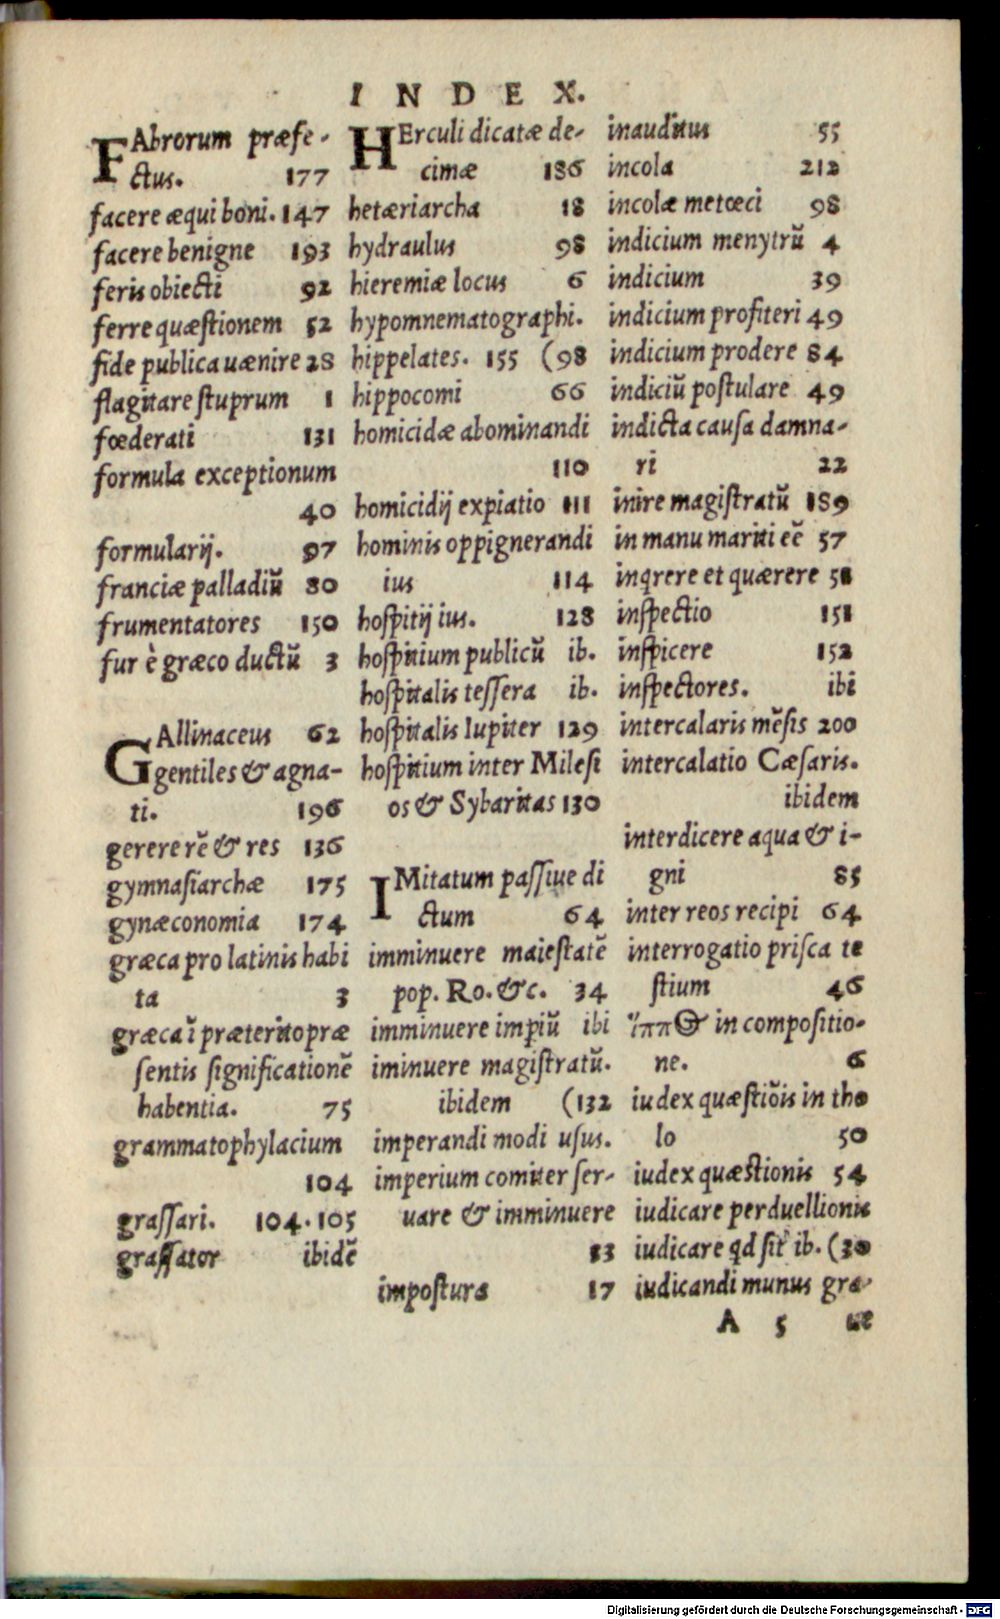 INDEX.
FAbrorum præfe-
ctus. 177
facere æqui boni. 147
facere benigne 193
feris obiecti 92
ferre quæstionem 52
fide publica uænire 28
flagitare stuprum 1
fœderati 131
formula exceptionum
40
formularij. 97
franciæ palladiũ 80
frumentatores 150
fur è græco ductũ 3
GAllinaceus 62
gentiles & agna-
ti. 196
gerere rẽ & res 136
gymnasiarchæ 175
gynæconomia 174
græca pro latinis habi
ta 3
græca ĩ præterito præ
sentis significationẽ
habentia. 75
grammatophylacium
104
grassari. 104.105
grassator ibidẽ
HErculi dicatæ de-
cimæ 186
hetæriarcha 18
hydraulus 98
hieremiæ locus 6
hypomnematographi.
hippelates. 155 (98
hippocomi 66
homicidæ abominandi
110
homicidij expiatio 111
hominis oppignerandi
ius 114
hospitij ius. 128
hospitium publicũ ib.
hospitalis tessera ib.
hospitalis Iupiter 129
hospitium inter Milesi
os & Sybaritas 130
IMitatum passiue di
ctum 64
imminuere maiestatẽ
pop. Ro. &c. 34
imminuere impiũ ibi
iminuere magistratũ.
ibidem (132
imperandi modi usus.
imperium comiter ser-
uare & imminuere
83
impostura 17
inauditus 55
incola 212
incolæ metœci 98
indicium menytrũ 4
indicium 39
indicium profiteri 49
indicium prodere 84
indiciũ postulare 49
indicta causa damna-
ri 22
inire magistratũ 189
in manu mariti eẽ 57
inqrere et quærere 58
inspectio 151
inspicere 152
inspectores. ibi
intercalaris mẽsis 200
intercalatio Cæsaris.
ibidem
interdicere aqua & i-
gni 85
inter reos recipi 64
interrogatio prisca te
stium 46
ἵππος in compositio-
ne. 6
iudex quæstiõis in tho
lo 50
iudex quæstionis 54
iudicare perduellionis
iudicare qd sit ib. (30
iudicandi munus gra-
A 5 ue
Digitalisierung gefördert durch die Deutsche Forschungsgemeinschaft - DFG